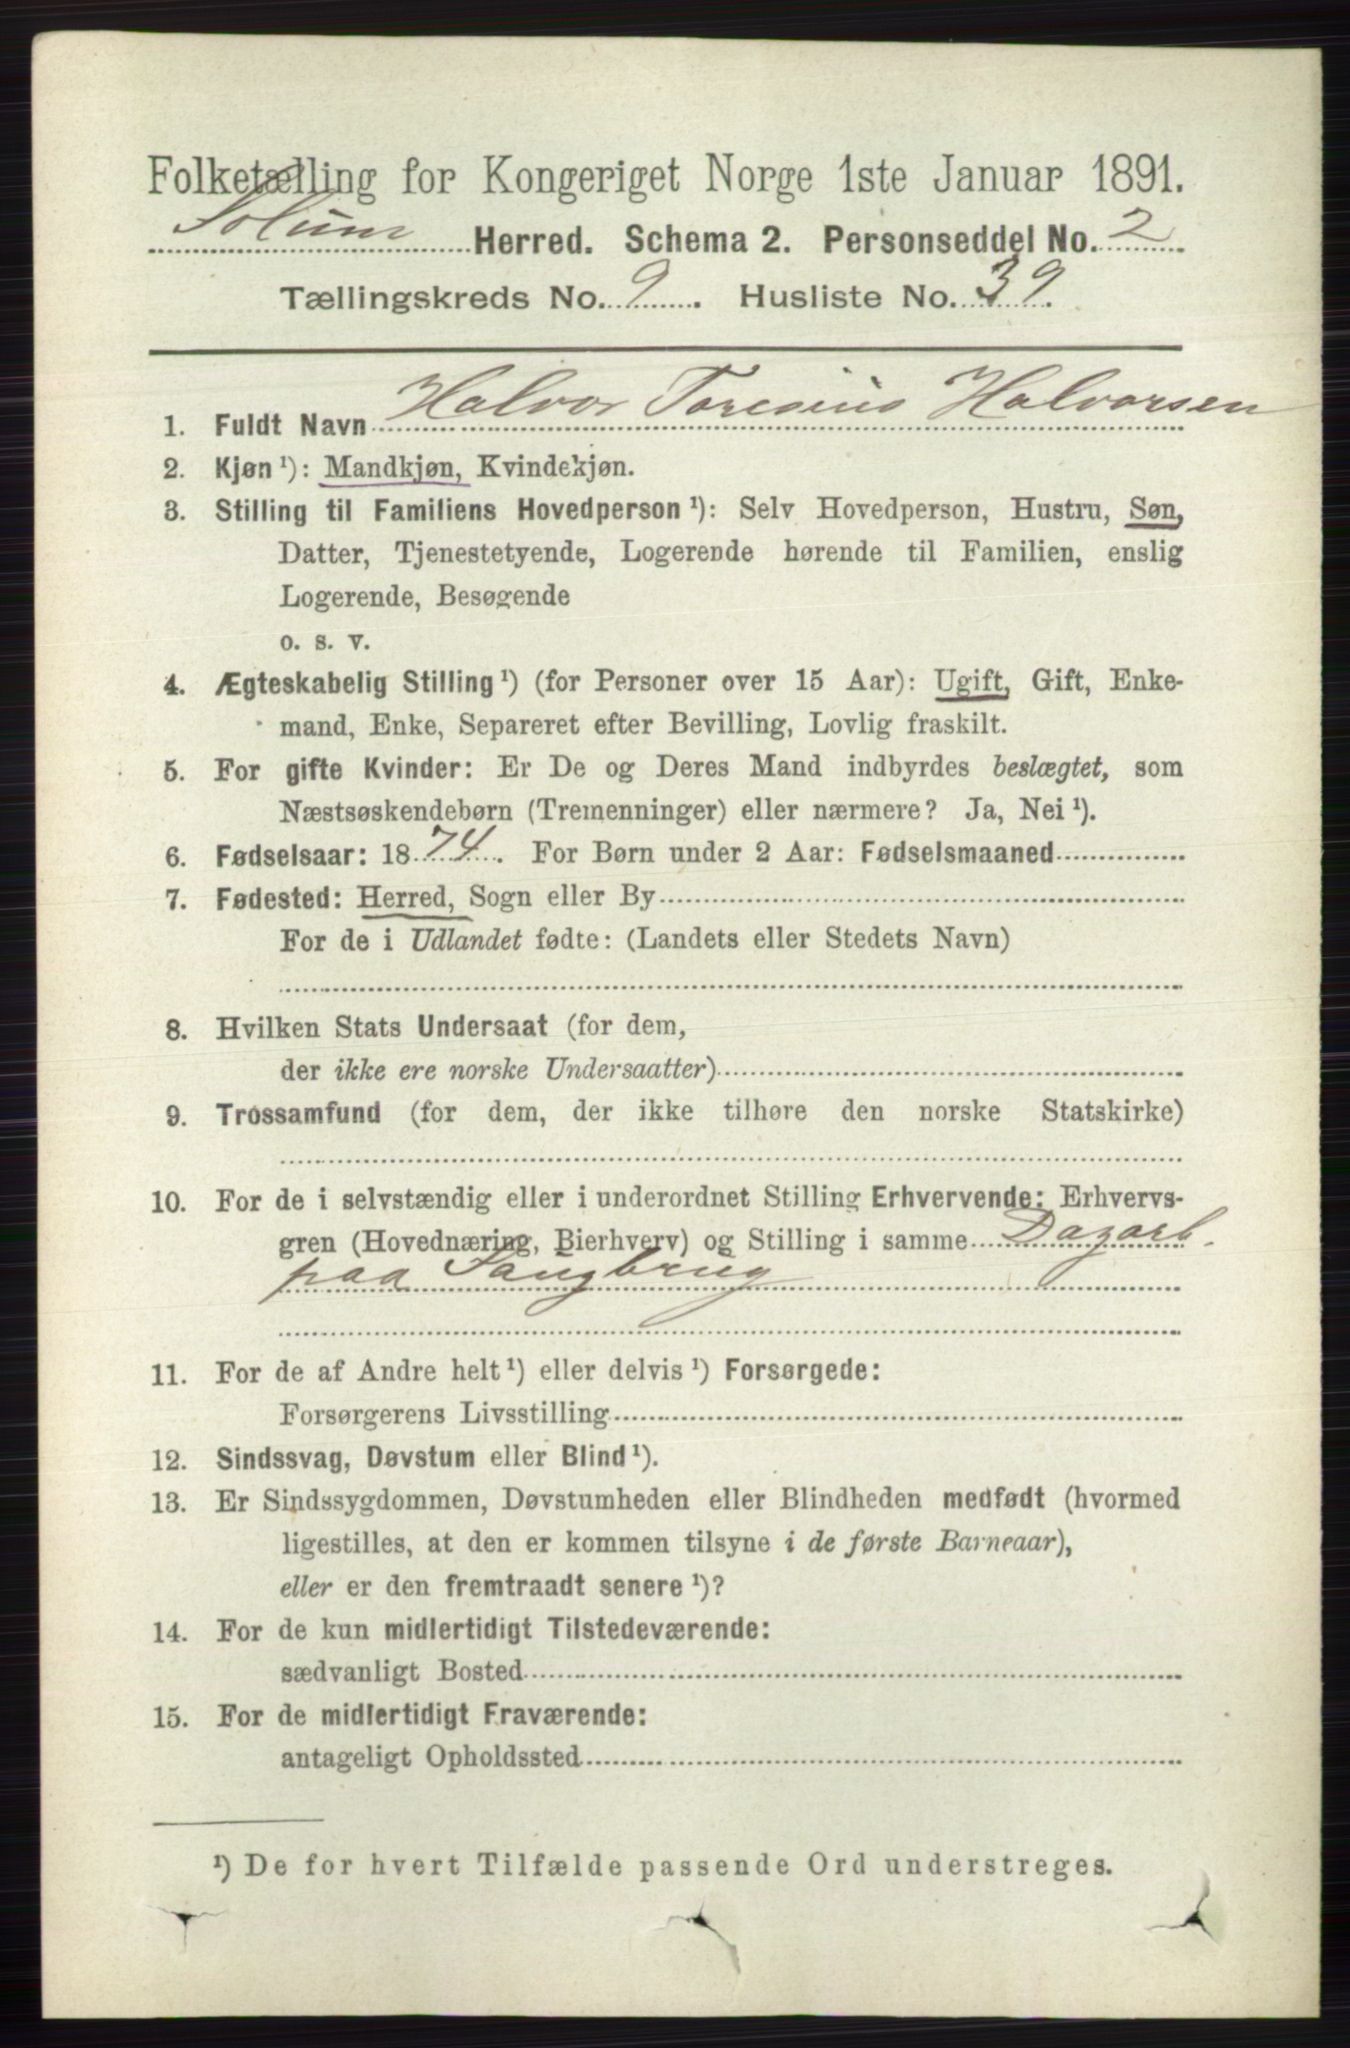 Folketælling for Kongeriget Norge 1ste Januar 1891.
Solum Herred. Schema 2. Personseddel No. 2
Tællingskreds No. 9. Husliste No. 39.
1. Fuldt Navn Halvor Toresius Halvorsen
2. Kjøn ¹): Mandkjøn, Kvindekjøn.
3. Stilling til Familiens Hovedperson ¹): Selv Hovedperson, Hustru, Søn,
Datter, Tjenestetyende, Logerende hørende til Familien, enslig
Logerende, Besøgende
o. s. v.
4. Ægteskabelig Stilling ¹) (for Personer over 15 Aar): Ugift, Gift, Enke-
mand, Enke, Separeret efter Bevilling, Lovlig fraskilt.
5. For gifte Kvinder: Er De og Deres Mand indbyrdes beslægtet, som
Næstsøskendebørn (Tremenninger) eller nærmere? Ja, Nei ¹).
6. Fødselsaar: 1874. For Børn under 2 Aar: Fødselsmaaned
7. Fødested: Herred, Sogn eller By
For de i Udlandet fødte: (Landets eller Stedets Navn)
8. Hvilken Stats Undersaat (for dem,
der ikke ere norske Undersaatter)
9. Trossamfund (for dem, der ikke tilhøre den norske Statskirke)
10. For de i selvstændig eller i underordnet Stilling Erhvervende: Erhvervs-
gren (Hovednæring, Bierhverv) og Stilling i samme Dagarb.
paa Saugbrug
11. For de af Andre helt ¹) eller delvis ¹) Forsørgede:
Forsørgerens Livsstilling
12. Sindssvag, Døvstum eller Blind ¹).
13. Er Sindssygdommen, Døvstumheden eller Blindheden medfødt (hvormed
ligestilles, at den er kommen tilsyne i de første Barneaar),
eller er den fremtraadt senere ¹)?
14. For de kun midlertidigt Tilstedeværende:
sædvanligt Bosted
15. For de midlertidigt Fraværende:
antageligt Opholdssted
¹) De for hvert Tilfælde passende Ord understreges.